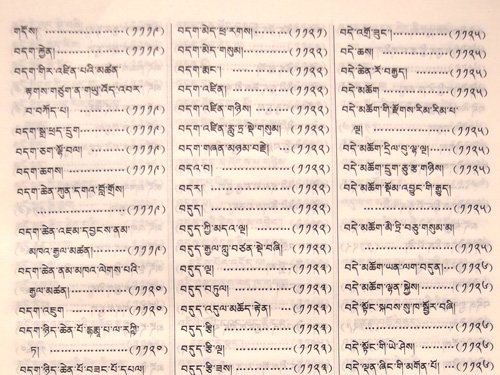 གདོས། ……………………(༡༡༡༩)
བདག་རྐྱེན། …………………(༡༡༡༩)
བདག་གིར་འཛིན་པའི་མཚན་
རྟགས་གཙུག་ན་གཡུ་འོད་འབར་
བ་བཀོད་པ། …………………(༡༡༡༩)
བདག་སྒྲ་ཕྲད་དྲུག …………(༡༡༡༩)
བདག་ཅག་ལྟོ་བལ། …………(༡༡༡༩)
བདག་ཆགས། …………………(༡༡༡༩)
བདག་ཆེན་ཀུན་དགའ་བློ་གྲོས།
……………………………(༡༡༡༩)
བདག་ཆེན་འཇམ་དབྱངས་ནམ་
མཁའ་རྒྱལ་མཚན། …………(༡༡༡༩)
བདག་ཆེན་ནམ་མཁའ་ལེགས་པའི་
རྒྱལ་མཚན། …………………(༡༡༢༠)
བདག་འཇུག …………………(༡༡༢༠)
བདག་ཉིད་ཆེན་པོ་
ཏ། ……………………………(༡༡༢༠)
བདག་ཉིད་ཆེན་པོ་བཟང་པོ་དཔལ།
བདག་མེད་ཕྲ་རགས། …………(༡༡༢༡)
བདག་མེད་གསུམ། ……………(༡༡༢༢)
བདག་རྨང་། …………………(༡༡༢༢)
བདག་འཛིན། …………………(༡༡༢༢)
བདག་འཛིན་གཉིས། …………(༡༡༢༢)
བདག་འཛིན་ལྟ་སྡེ་གསུམ། (༡༡༢༢)
བདག་གཞན་མཉམ་བརྗེ། ……(༡༡༢༢)
བདའ་བ། ……………………(༡༡༢༢)
བདར། ………………………(༡༡༢༢)
བདུད། ………………………(༡༡༢༢)
བདུད་ཀྱི་མདའ་ལྔ། …………(༡༡༢༢)
བདུད་རྒྱལ་ བཙན་སྡེ་བཞི། (༡༡༢༢)
བདུད་ལྔ། ……………………(༡༡༢༣)
བདུད་བཏུལ། …………………(༡༡༢༣)
བདུད་འདུལ་མཆོད་རྟེན། ……(༡༡༢༣)
བདུད་རྩི། ……………………(༡༡༢༣)
བདུད་རྩི་ལྔ། …………………(༡༡༢༣)
བདུད་རྩི་ཟས། …………………(༡༡༢༣)
བདེ་འགྲོ་ཟུང་། ………………(༡༡༢༥)
བདེ་ཆས། ……………………(༡༡༢༥)
བདེ་ཆེན་རོ་བརྒྱད། …………(༡༡༢༥)
བདེ་མཆོག ……………………(༡༡༢༥)
བདེ་མཆོག་གི་རྫོགས་རིམ་རིམ་པ་
ལྔ། ……………………………(༡༡༢༥)
བདེ་མཆོག་དྲིལ་བུ་ལྷ་ལྔ། ……(༡༡༢༥)
བདེ་མཆོག་དྲུག་ཅུ་རྩ་གཉིས། (༡༡༢༥)
བདེ་མཆོག་སྡོམ་འབྱུང་གི་རྒྱུད།
……………………………(༡༡༢༥)
བདེ་མཆོག་མཻ་ཏྲི་བཅུ་གསུམ་མ།
……………………………(༡༡༢༥)
བདེ་མཆོག་ཡན་ལག་བདུན། …(༡༡༢༦)
བདེ་མཆོག་ལྷན་སྐྱེས། …………(༡༡༢༦)
བདེ་སྟོང་སྐབས་སུ་ཁ་སྦྱོར་བཞི།
……………………………(༡༡༢༦)
བདེ་སྟོང་གི་ཡེ་ཤེས། …………(༡༡༢༦)
བདེ་ལྡན་ཞིང་གི་མགོན་པོ། …(༡༡༢༦)